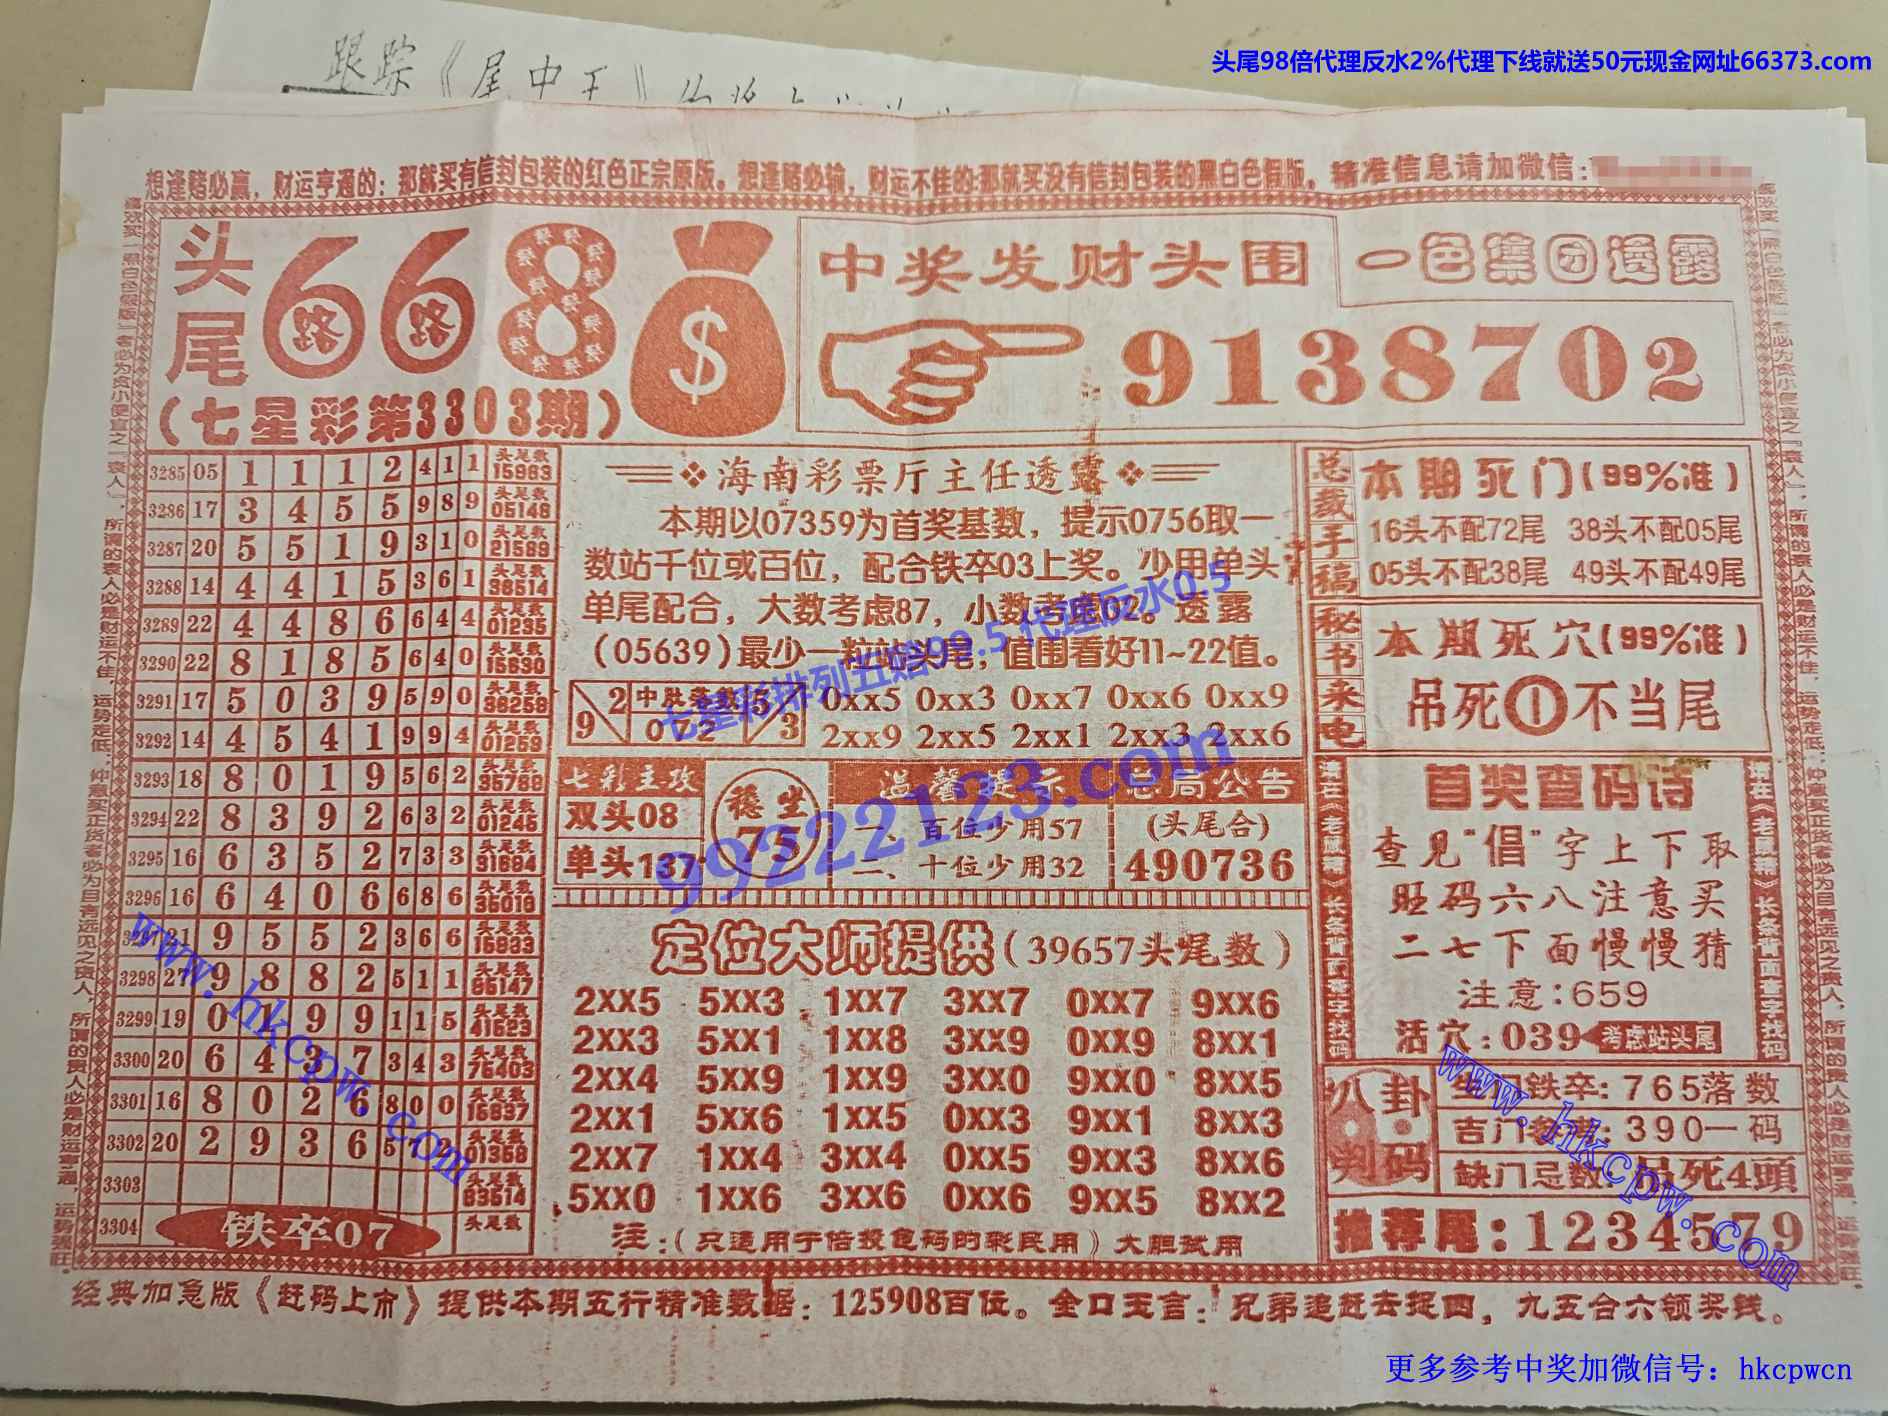 头尾98倍代理反水2%代理下线就送50元现金网址66373.com
跟踪《尾中王》
想逢赌必赢，财运亨通的：那就买有信封包装的红色正宗原版。想逢赌必输，财运不佳的:那就买没有信封包装的黑白色假版。精准信息请加微信：
头尾 668
路 路
(七星彩第3303期)
$
中奖发财头围
一色集团透露
9138702
3285 05 1 1 1 2 4 1 1 头尾数 15963
3286 17 3 4 5 5 9 8 9 头尾数 05148
3287 20 5 5 1 9 3 1 0 头尾数 21589
3288 14 4 4 1 5 3 6 1 头尾数 36514
3289 22 4 4 8 6 6 4 4 头尾数 01235
3290 22 8 1 8 5 6 4 0 头尾数 15630
3291 17 5 0 3 9 5 9 0 头尾数 36259
3292 14 4 5 4 1 9 9 4 头尾数 01259
3293 18 8 0 1 9 5 6 2 头尾数 35789
3294 22 8 3 9 2 6 3 2 头尾数 01245
3295 16 6 3 5 2 7 3 3 头尾数 31694
3296 16 6 4 0 6 6 8 6 头尾数 35019
21 9 5 5 2 3 6 6 头尾数 15933
3298 27 9 8 8 2 5 1 1 头尾数 85147
3299 19 0 1 9 9 1 1 5 头尾数 41523
3300 20 6 4 3 7 3 4 3 头尾数 75403
3301 16 8 0 2 6 8 0 0 头尾数 15837
3302 20 2 9 3 6 5 7 2 头尾数 01358
3303 头尾数 83514
3304 铁卒07 头尾数
海南彩票厅主任透露
本期以07359为首奖基数，提示0756取一
数站千位或百位，配合铁卒03上奖。少用单头
单尾配合，大数考虑87，小数考虑02。透露
（05639）最少一粒站头尾，值围看好11~22值。
9 2 中肚落数 072 5 3
0xx5 0xx3 0xx7 0xx6 0xx9
2xx9 2xx5 2xx1 2xx3 2xx6
七彩主攻
双头08
单头137
稳坐 75
温馨提示
一、百位少用57
二、十位少用32
总局公告
(头尾合)
490736
定位大师提供（39657头尾数）
2xx5 5xx3 1xx7 3xx7 0xx7 9xx6
2xx3 5xx1 1xx8 3xx9 0xx9 8xx1
2xx4 5xx9 1xx9 3xx0 9xx0 8xx5
2xx1 5xx6 1xx5 0xx3 9xx1 8xx3
2xx7 1xx4 3xx4 0xx5 9xx3 8xx6
5xx0 1xx6 3xx6 0xx6 9xx5 8xx2
注：(只适用于倍投包码的彩民用）大胆试用
总裁手稿
本期死门(99%准)
16头不配72尾 38头不配05尾
05头不配38尾 49头不配49尾
秘书来电
本期死穴(99%准)
吊死①不当尾
首奖查码诗
查见"倡"字上下取
旺码六八注意买
二七下面慢慢猜
注意:659
活穴:039 考虑站头尾
八卦判码
生门铁卒:765落数
吉门:390一码
缺门忌数:吊死4頭
推荐尾:1234579
经典加急版《赶码上市》提供本期五行精准数据：125908百位。金口玉言：兄弟追赶去捉四，九五合六领奖钱。
七星彩排列五赔99.5 代理反水0.5
99222123.com
www.hkcpw.com
www.hkcpw.com
更多参考中奖加微信号：hkcpwcn